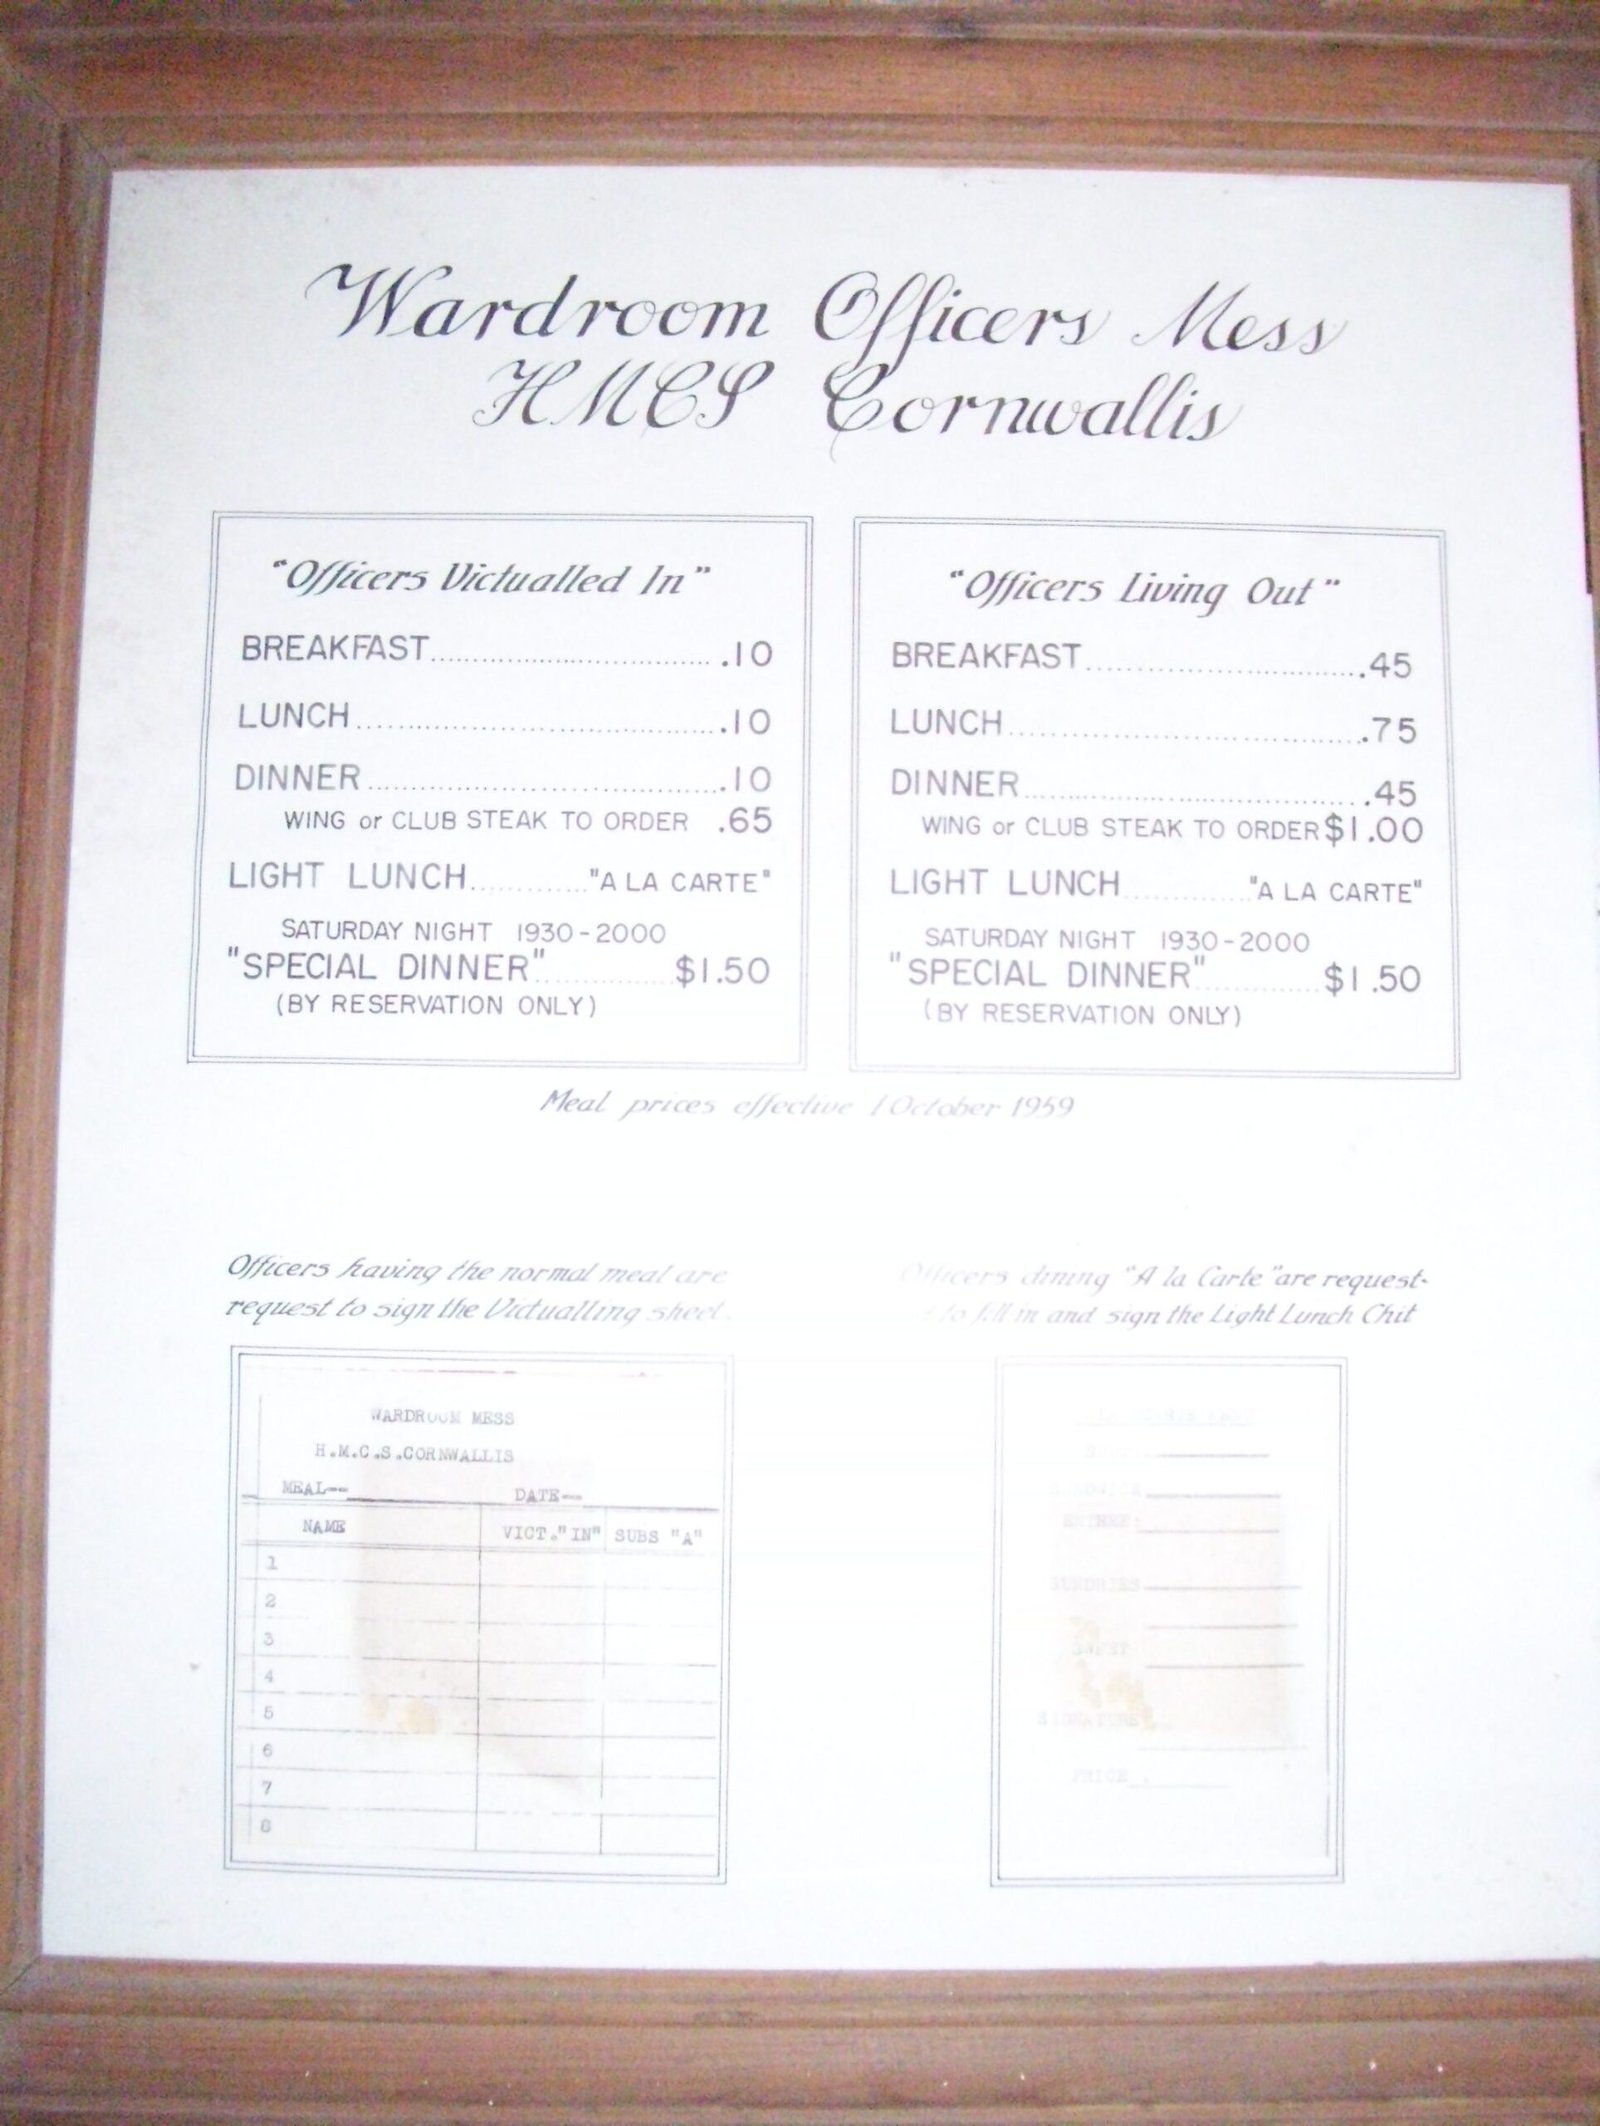 Wardroom Officers Mess
HMCS Cornwallis
"Officers Victualled In"
BREAKFAST .10
LUNCH .10
DINNER .10
WING or CLUB STEAK TO ORDER .65
LIGHT LUNCH "A LA CARTE"
SATURDAY NIGHT 1930-2000
"SPECIAL DINNER" $1.50
(BY RESERVATION ONLY)
"Officers Living Out"
BREAKFAST .45
LUNCH .75
DINNER .45
WING or CLUB STEAK TO ORDER $1.00
LIGHT LUNCH "A LA CARTE"
SATURDAY NIGHT 1930-2000
"SPECIAL DINNER" $1.50
(BY RESERVATION ONLY)
Meal prices effective 1 October 1959
Officers having the normal meal are
request to sign the Victualling sheet.
WARDROOM MESS
H.M.C.S.CORNWALLIS
MEAL-- DATE--
NAME VICT."IN" SUBS "A"
1
2
3
4
5
6
7
8
Officers dining "A la Carte" are request-
to fill in and sign the Light Lunch Chit
ENTREE:
SUNDRIES
SIGNATURE
PRICE